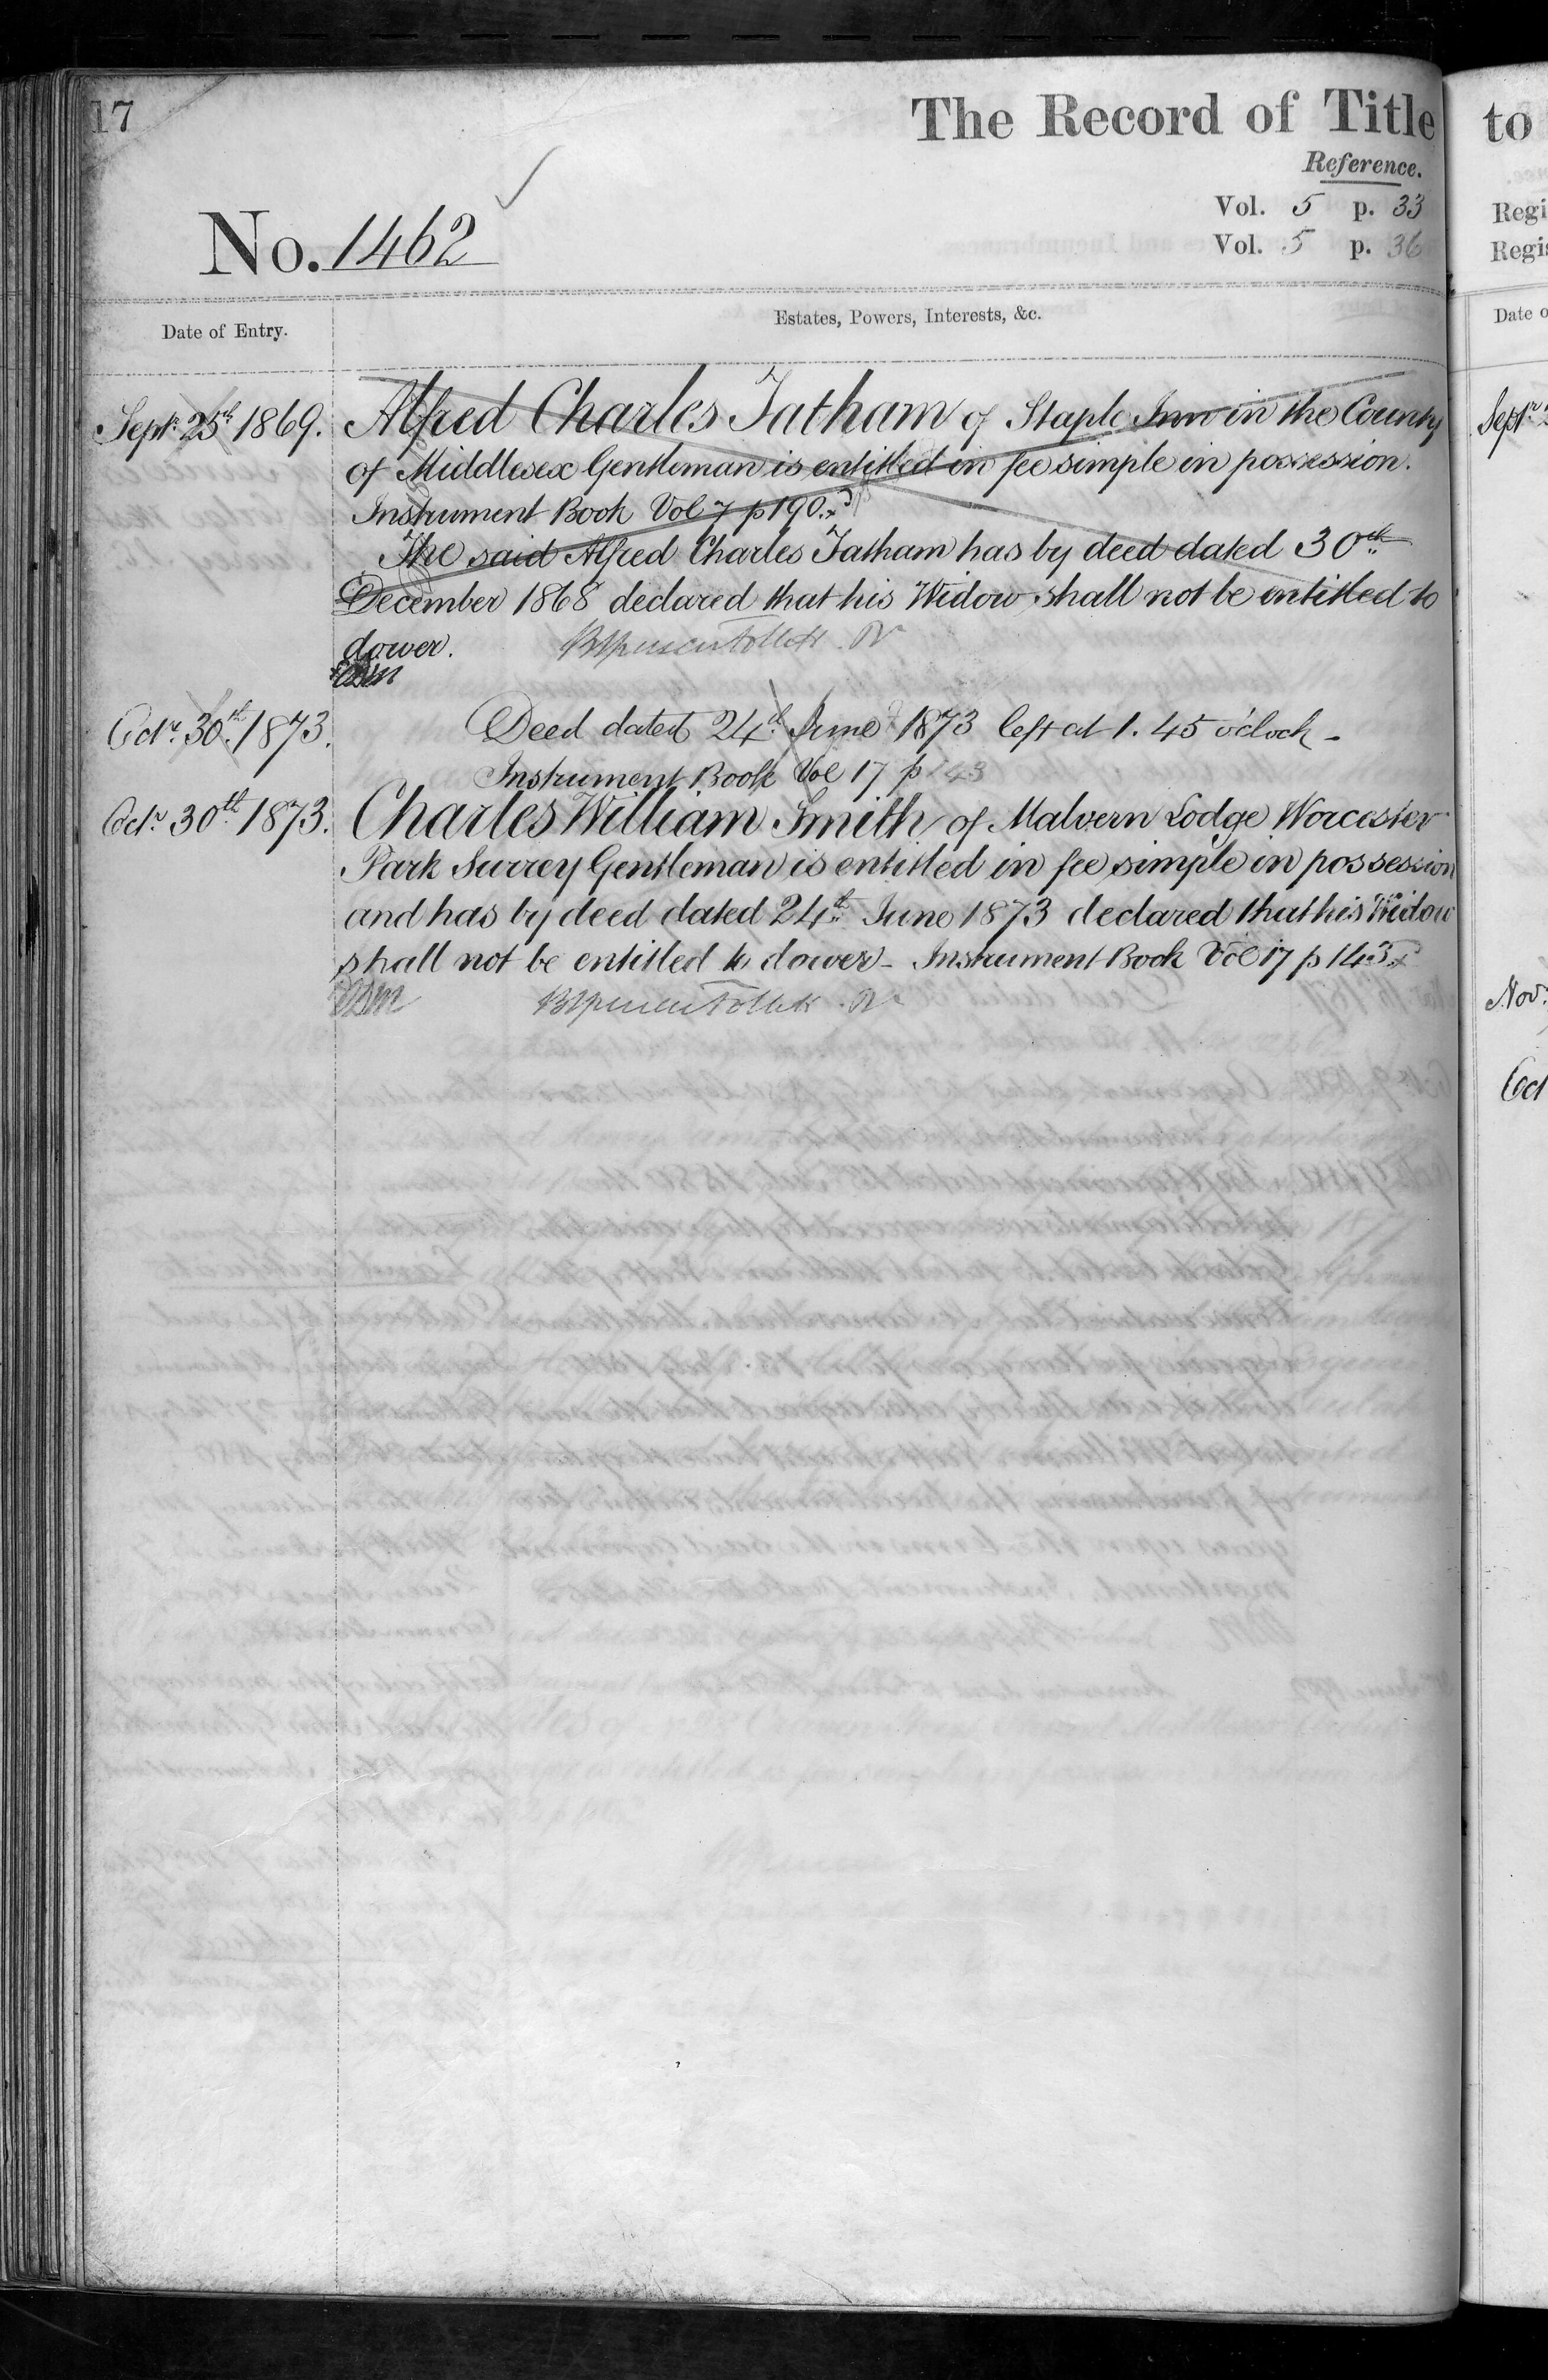 17
The Record of Title
Reference.
Vol. 5 p. 33
Vol. 5 p. 36
No. 1462
Date of Entry.
Estates, Powers, Interests, &c.
Septr. 25th 1869. Alfred Charles Tatham of Staple Inn in the County
of Middlesex Gentleman is entitled in fee simple in possession.
Instrument Book Vol 7 p 190.
The said Alfred Charles Tatham has by deed dated 30th
December 1868 declared that his Widow shall not be entitled to
dower.
Octr. 30th 1873. Deed dated 24th June 1873 left at 1.45 o'clock -
Instrument Book Vol 17 p 143
Octr. 30th 1873. Charles William Smith of Malvern Lodge Worcester
Park Surrey Gentleman is entitled in fee simple in possession
and has by deed dated 24th June 1873 declared that his Widow
shall not be entitled to dower - Instrument Book Vol 17 p 143
to
Regi
Regis
Date o
Septr. 2
Nov.
Oct